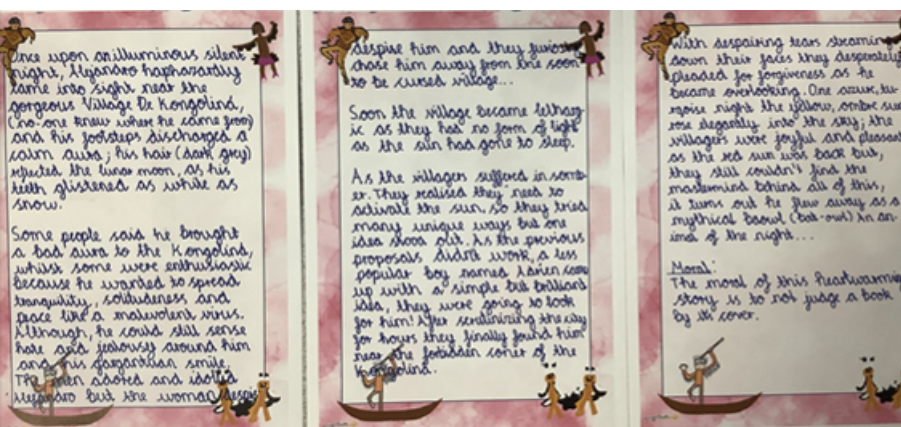 Once upon an illuminous silent
night, Alejandro haphazardly
came into sight near the
gorgeous Village De Kongolind,
(no-one knew where he came from)
and his footsteps discharged a
calm aura; his hair (dark grey)
reflected the lunar moon, as his
teeth glistened as white as
snow.
Some people said he brought
a bad aura to the Kongolind,
whilst some were enthusiastic
because he wanted to spread
tranquility, solitudeness and
peace like a malevolent virus.
Although, he could still sense
hate and jealousy around him
and his gargantuan smile.
The men adored and idolised
Alejandro but the woman despis
despise him and they furiously
chase him away from the soon
to be cursed village...
Soon the village became letharg
ic as they had no form of light
as the sun had gone to sleep.
As the villagers suffered in somb-
er. They realised they need to
activate the sun, so they tried
many unique ways but one
idea stood out. As the previous
proposals didn't work, a less
popular boy named Adrien came
up with a simple but brilliant
idea, they were going to look
for him! After scrutinizing the city
for hours they finally found him
near the forbidden corner of the
Kongolind.
With despairing tears streaming
down their faces they desperately
pleaded for forgiveness as he
became overlooking. One azure, tu-
rqoise night the yellow, ombre sun
rose elegantly into the sky; the
villagers were joyful and pleasant
as the red sun was back but,
they still couldn't find the
mastermind behind all of this,
it turns out he flew away as a
mythical baowl (bat-owl) An an-
imal of the night...
Moral:
The moral of this heartwarming
story is to not judge a book
by its cover.